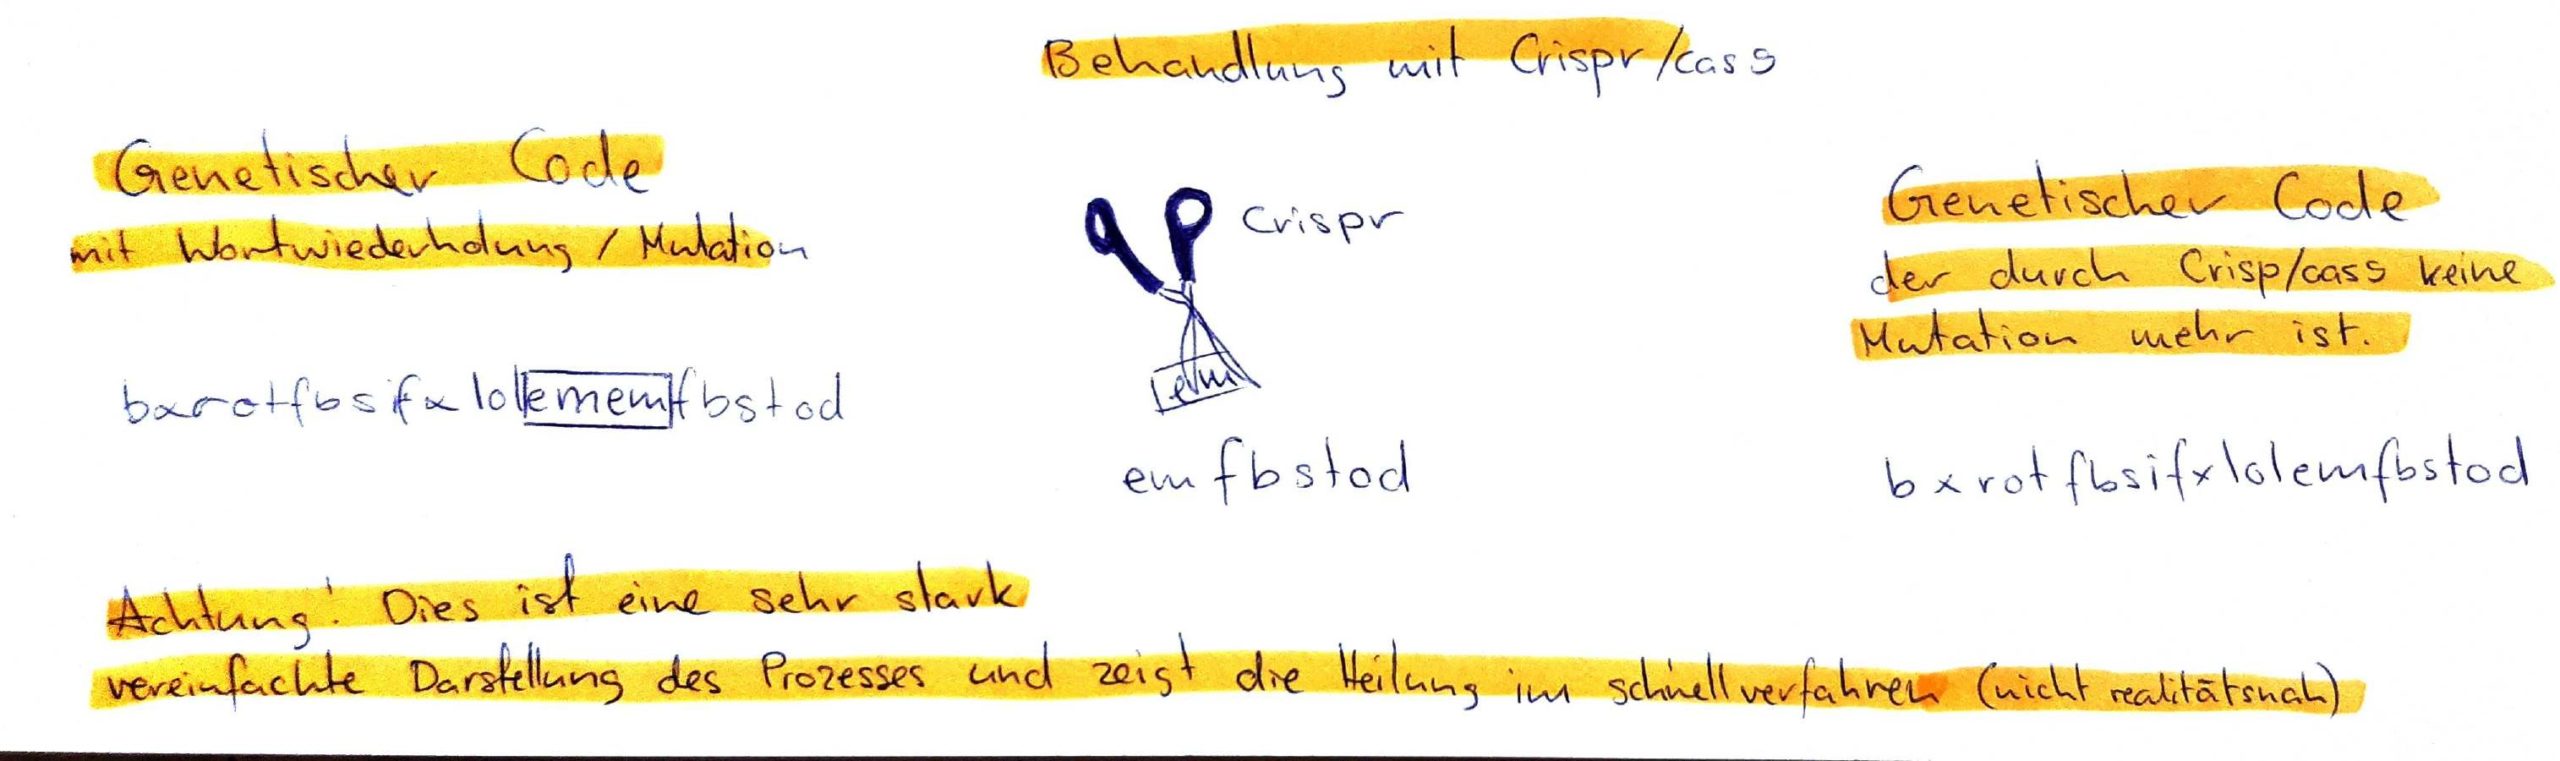 Behandlung mit Crispr/cas 9
Genetischer Code
mit Wortwiederholung / Mutation
bxrotfbsifxlolememfbstod
Crispr
em
emfbstod
Genetischer Code
der durch Crisp/cas9 keine
Mutation mehr ist.
bxrotfbsifxlolemfbstod
Achtung! Dies ist eine sehr stark
vereinfachte Darstellung des Prozesses und zeigt die Heilung im schnellverfahren (nicht realitätsnah)